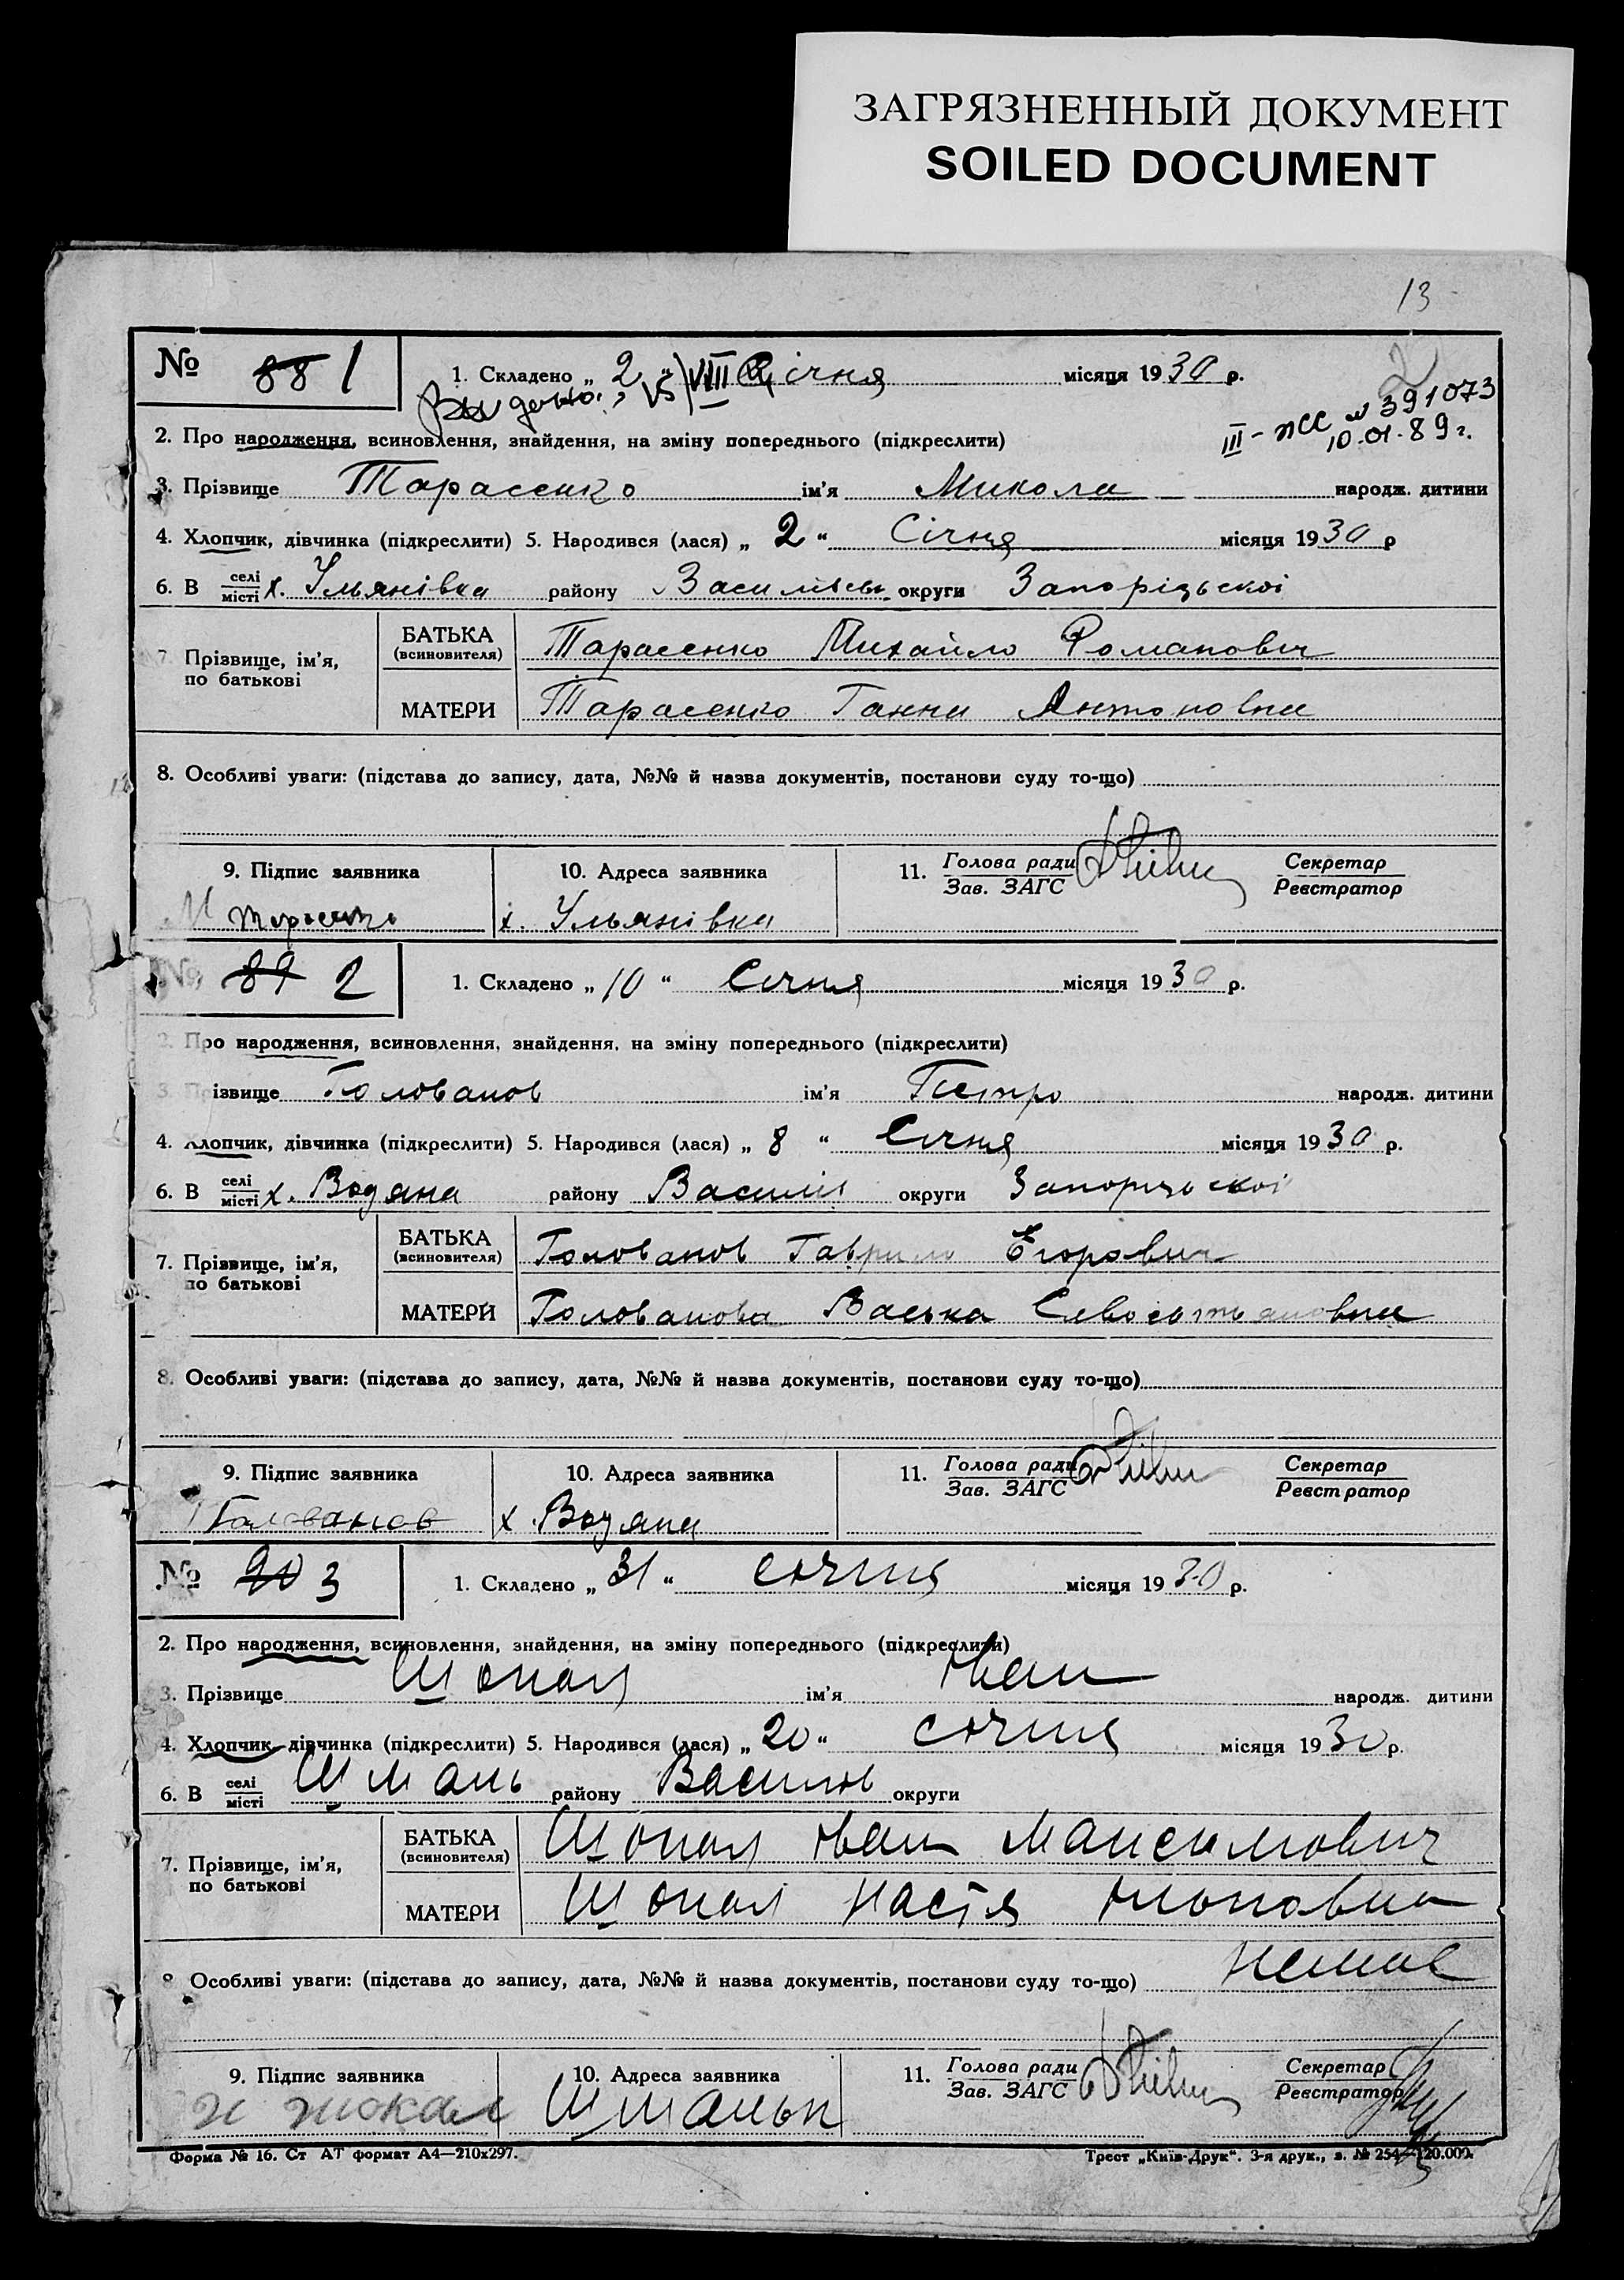 ЗАГРЯЗНЕННЫЙ ДОКУМЕНТ
SOILED DOCUMENT
13
№ 88 1
1. Складено „ 2 “ Січня місяця 1930 р.
VIII
III - ЖС № 391073
10.01.89 г.
2. Про народження, всиновлення, знайдення, на зміну попереднього (підкреслити)
3. Прізвище Тарасенко ім'я Микола народж. дитини
4. Хлопчик, дівчинка (підкреслити) 5. Народився (лася) „ 2 “ Січня місяця 1930 р
6. В селі/місті х. Ульянівка району Василівськ. округи Запорізької
7. Прізвище, ім'я, по батькові
БАТЬКА (всиновителя) Тарасенко Михайло Романович
МАТЕРИ Тарасенко Ганна Антоновна
8. Особливі уваги: (підстава до запису, дата, №№ й назва документів, постанови суду то-що)
9. Підпис заявника 10. Адреса заявника 11. Голова ради/Зав. ЗАГС Секретар/Реєстратор
М Тарасенко х. Ульянівка
№ 89 2
1. Складено „ 10 “ Січня місяця 1930 р.
2. Про народження, всиновлення, знайдення, на зміну попереднього (підкреслити)
3. Прізвище Голованов ім'я Петро народж. дитини
4. Хлопчик, дівчинка (підкреслити) 5. Народився (лася) „ 8 “ Січня місяця 1930 р.
6. В селі/місті х. Водяна району Василів округи Запорізької
7. Прізвище, ім'я, по батькові
БАТЬКА (всиновителя) Голованов Гаврило Егорович
МАТЕРИ Голованова Васька Севостьяновна
8. Особливі уваги: (підстава до запису, дата, №№ й назва документів, постанови суду то-що)
9. Підпис заявника 10. Адреса заявника 11. Голова ради/Зав. ЗАГС Секретар/Реєстратор
Голованов х. Водяна
№ 90 3
1. Складено „ 31 “ січня місяця 1930 р.
2. Про народження, всиновлення, знайдення, на зміну попереднього (підкреслити)
3. Прізвище ім'я Іван народж. дитини
4. Хлопчик, дівчинка (підкреслити) 5. Народився (лася) „ 20 “ січня місяця 1930 р.
6. В селі/місті району Василів округи
7. Прізвище, ім'я, по батькові
БАТЬКА (всиновителя) Іван Максимович
МАТЕРИ Настя
8. Особливі уваги: (підстава до запису, дата, №№ й назва документів, постанови суду то-що) немає
9. Підпис заявника 10. Адреса заявника 11. Голова ради/Зав. ЗАГС Секретар/Реєстратор
Форма № 16. Ст АТ формат А4—210х297. Трест „Київ-Друк“. 3-я друк., з. № 254—120.000.